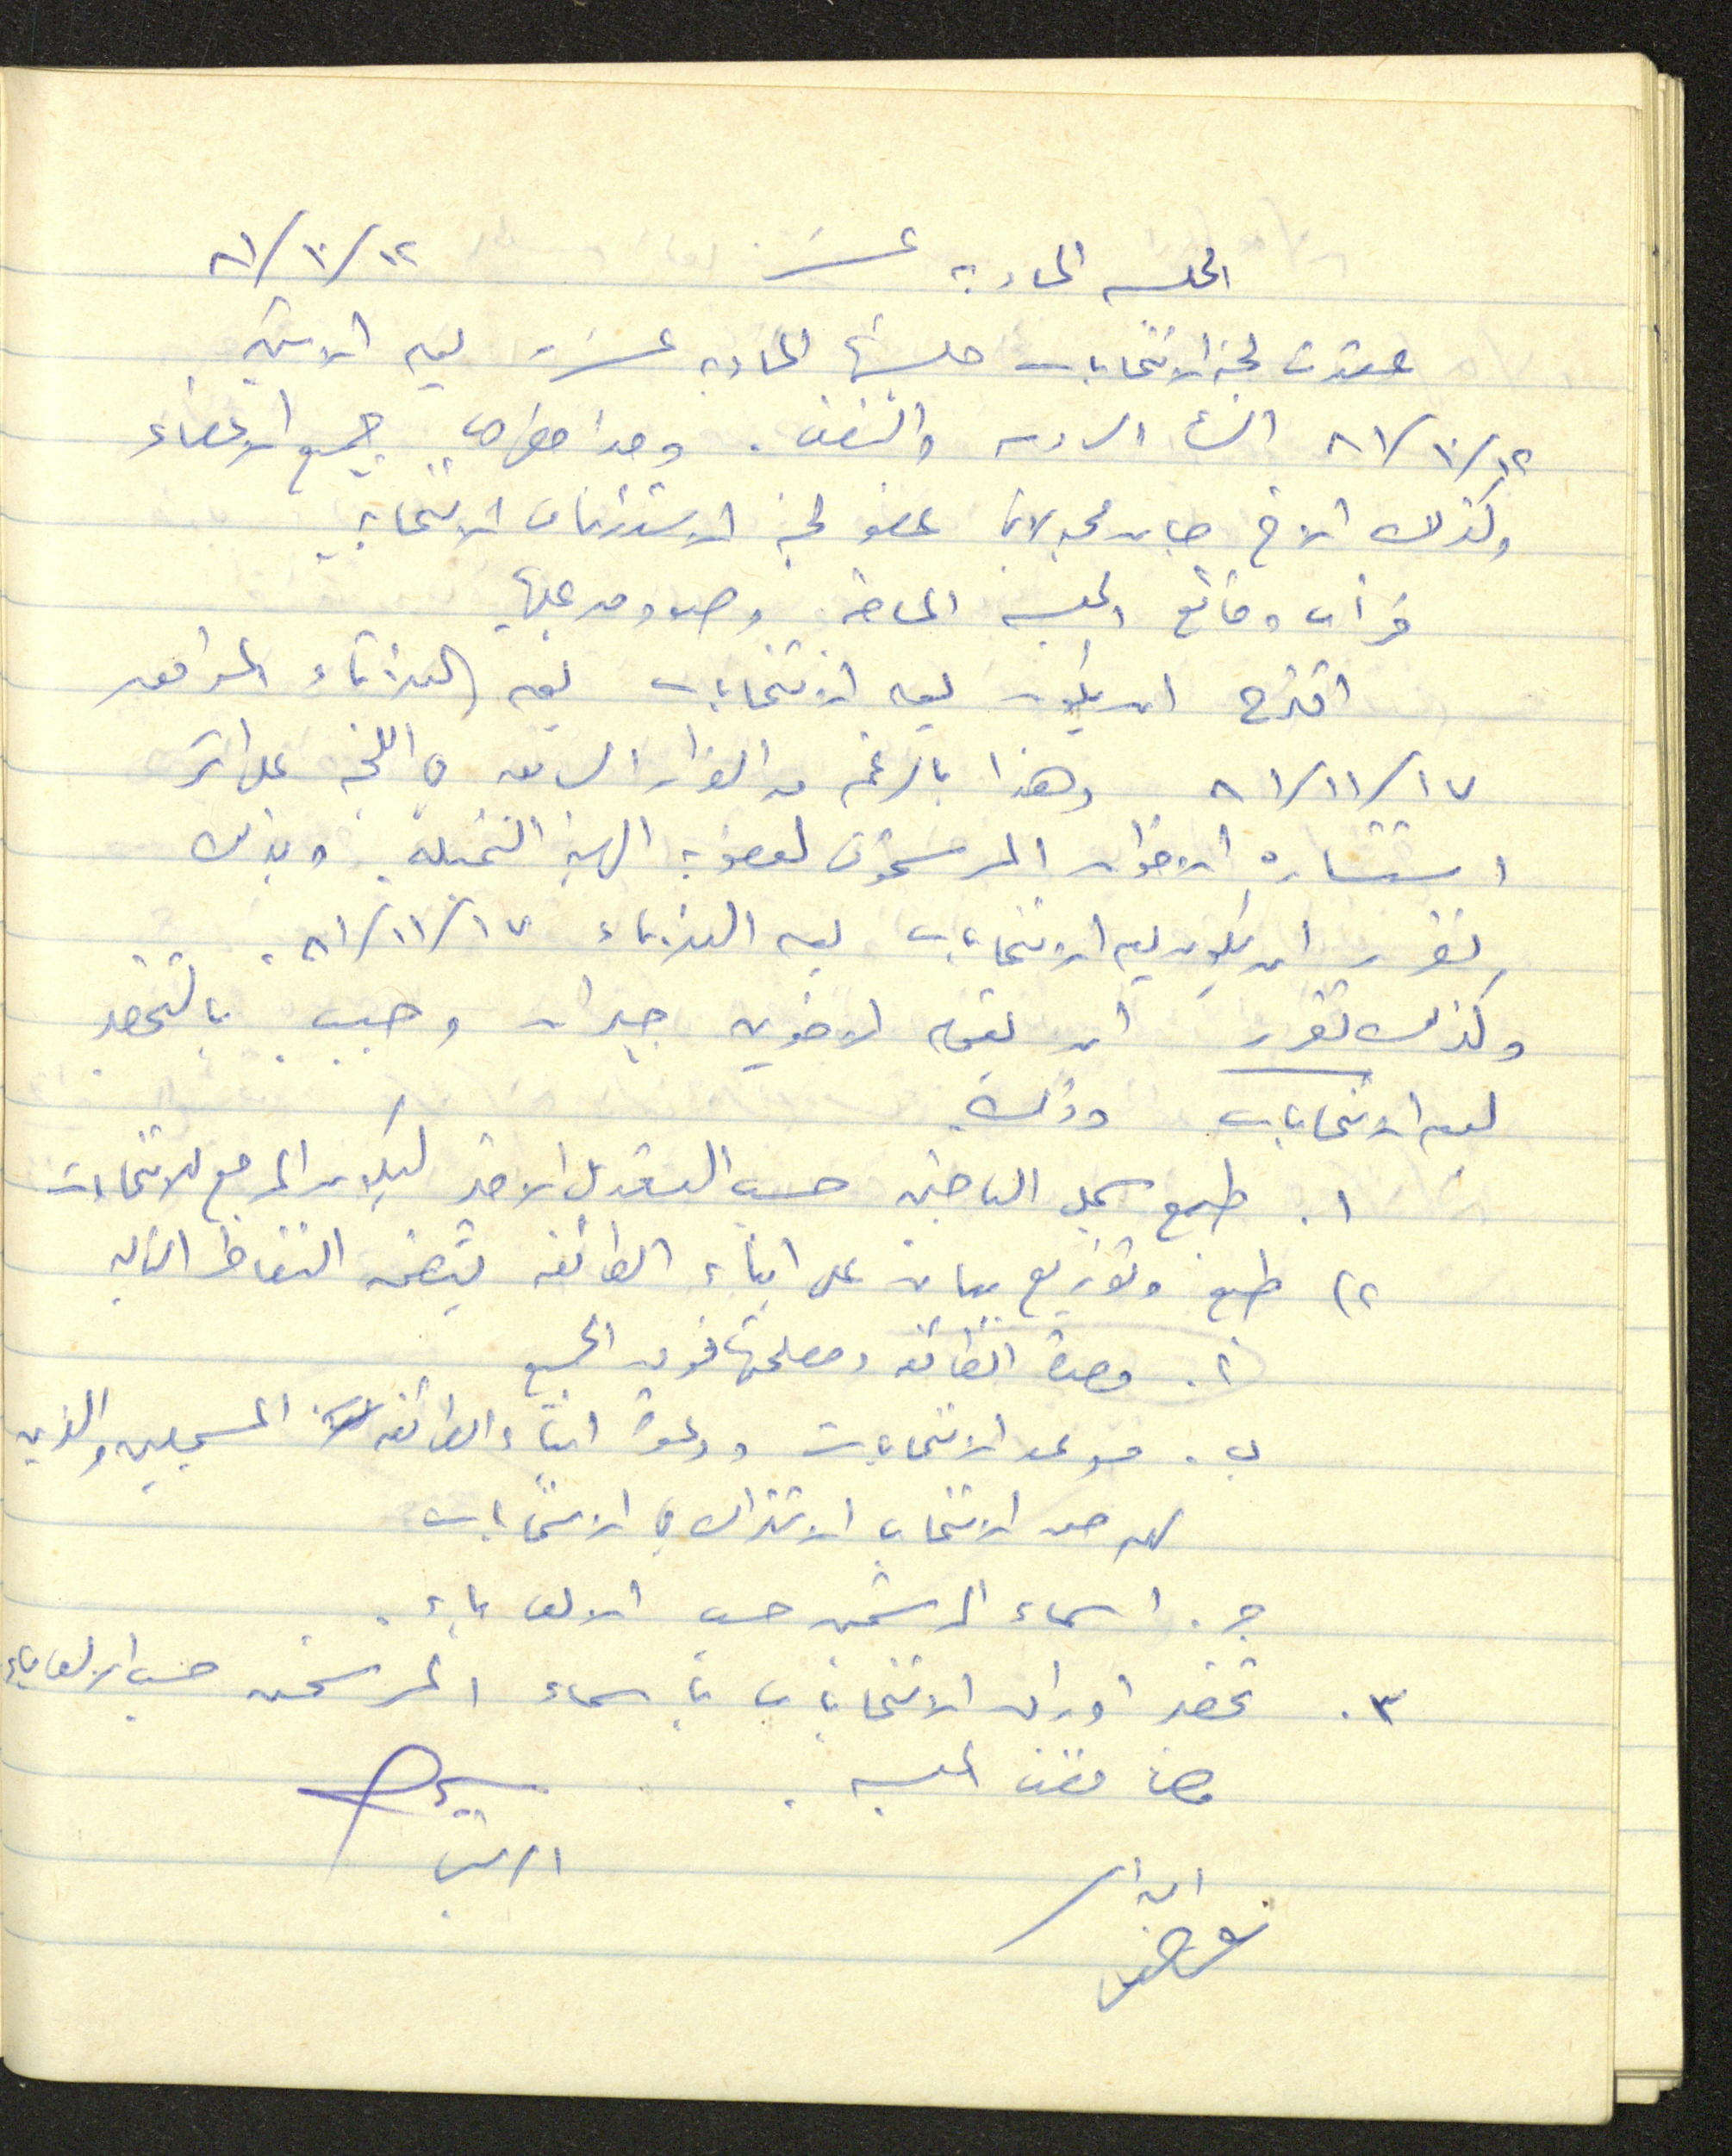 الجلسة الحادية عشر ١٢/١٠/٨١
عقدت لجنة الانتخابات جلستها الحادية عشرة يوم الاثنين
١٢/١٠/٨١ الساعة السادسة والنصف. وقد حضرها جميع الاعضاء
وكذلك الاخ عضو لجنة الاستئناف الانتخابية
قرأت وقائع الجلسة الماضية وصودق عليها
اقترح ان يكون يوم الانتخابات يوم الثلاثاء الموافق
١٧/١١/٨١ وهذا بالرغم من القرار السابق في اللجنة على اثر
استشارة الاخوان المرشحون لعضوية الهيئة التمثيلية. وبذلك
تقرر ان يكون يوم الانتخابات يوم الثلاثاء ١٧/١١/٨١.
وكذلك تقرر ان يقوم الاخوين جبران وحبيب بالتحضير
ليوم الانتخابات وذلك
١. طبع سجل الناخبين حسب التعديل الاخير ليكون المرجع للانتخابات
٢) طبع وتوزيع بيان على ابناء الطائفة يتضمن النقاط التالية
أ. وحدة الطائفة ومصلحتها فوق الجميع
ب. موعد الانتخابات ودعوة ابناء الطائفة المسجلين والذين
لهم حق الانتخاب الاشتراك في الانتخابات
ج. اسماء المرشحين حسب الالف باء.
٣. تحضير اوراق الانتخابات باسماء المرشحين حسب الالف باء
وهنا فضت الجلسة.
الرئيس
امين السر